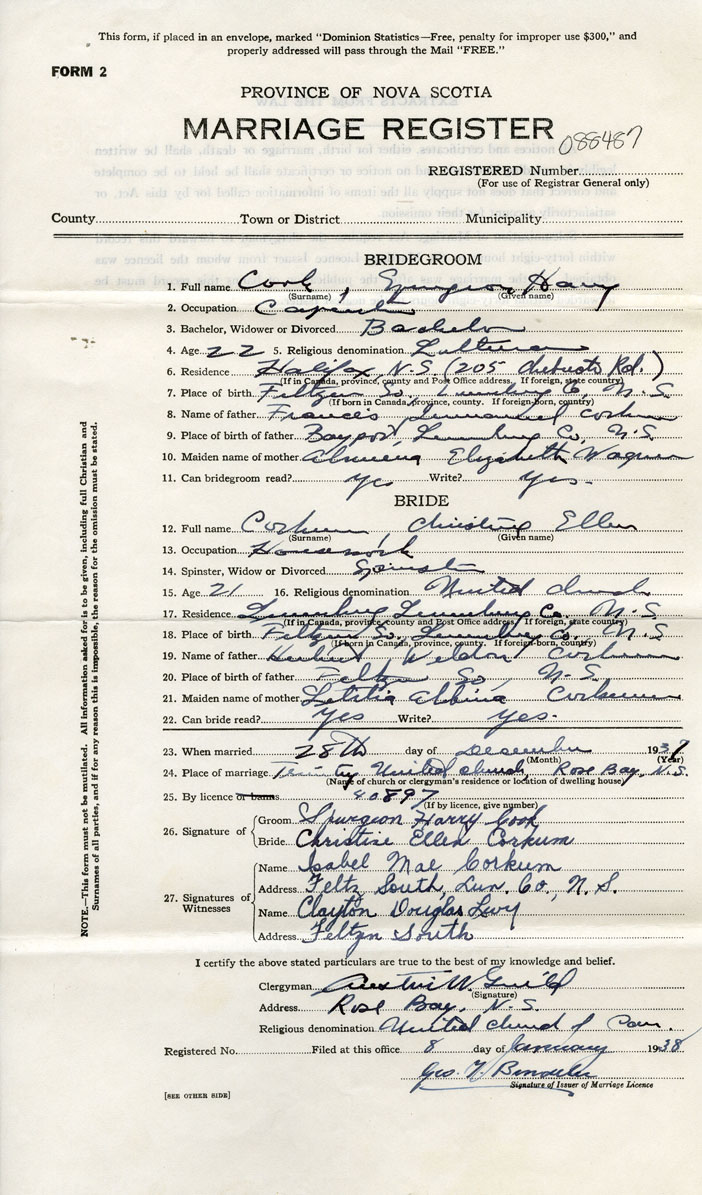 This form, if placed in an envelope, marked "Dominion Statistics—Free, penalty for improper use $300," and
properly addressed will pass through the Mail "FREE."
FORM 2
PROVINCE OF NOVA SCOTIA
MARRIAGE REGISTER
088487
REGISTERED Number
(For use of Registrar General only)
County Town or District Municipality
BRIDEGROOM
1. Full name Cook, Spurgeon Harry
(Surname) (Given name)
2. Occupation Carpenter
3. Bachelor, Widower or Divorced Bachelor
4. Age 22 5. Religious denomination Lutheran
6. Residence Halifax, N.S. (205 Chebucto Rd.)
(If in Canada, province, county and Post Office address. If foreign, state country)
7. Place of birth Feltzen So, Lunenburg Co, N.S.
(If born in Canada, province, county. If foreign-born, country)
8. Name of father Francis Cook
9. Place of birth of father Bayport, Lunenburg Co, N.S.
10. Maiden name of mother Almena Elizabeth Wagner
11. Can bridegroom read? Yes Write? Yes.
BRIDE
12. Full name Corkum, Christine Ellen
(Surname) (Given name)
13. Occupation Housework
14. Spinster, Widow or Divorced Spinster
15. Age 21 16. Religious denomination United Church
17. Residence Lunenburg Lunenburg Co. N.S.
(If in Canada, province, county and Post Office address. If foreign, state country)
18. Place of birth Feltzen So. Lunenburg Co. N.S
(If born in Canada, province, county. If foreign-born, country)
19. Name of father Herbert Weldon Corkum
20. Place of birth of father Feltzen So, N.S.
21. Maiden name of mother Letitia Albina Corkum
22. Can bride read? Yes Write? Yes.
23. When married 28th day of December 1937
(Month) (Year)
24. Place of marriage Trinity United Church, Rose Bay, N.S.
(Name of church or clergyman's residence or location of dwelling house)
25. By licence or banns 40897
(If by licence, give number)
26. Signature of
Groom Spurgeon Harry Cook
Bride Christine Ellen Corkum
27. Signatures of Witnesses
Name Isabel Mae Corkum
Address Feltz South, Lun. Co., N.S.
Name Clayton Douglas Levy
Address Feltzn South
I certify the above stated particulars are true to the best of my knowledge and belief.
Clergyman Austin W. Guild
(Signature)
Address Rose Bay, N.S.
Religious denomination United Church of Can.
Registered No. Filed at this office 8 day of January 1938
Geo.
Signature of Issuer of Marriage Licence
[SEE OTHER SIDE]
NOTE.—This form must not be mutilated. All information asked for is to be given, including full Christian and
Surnames of all parties, and if for any reason this is impossible, the reason for the omission must be stated.